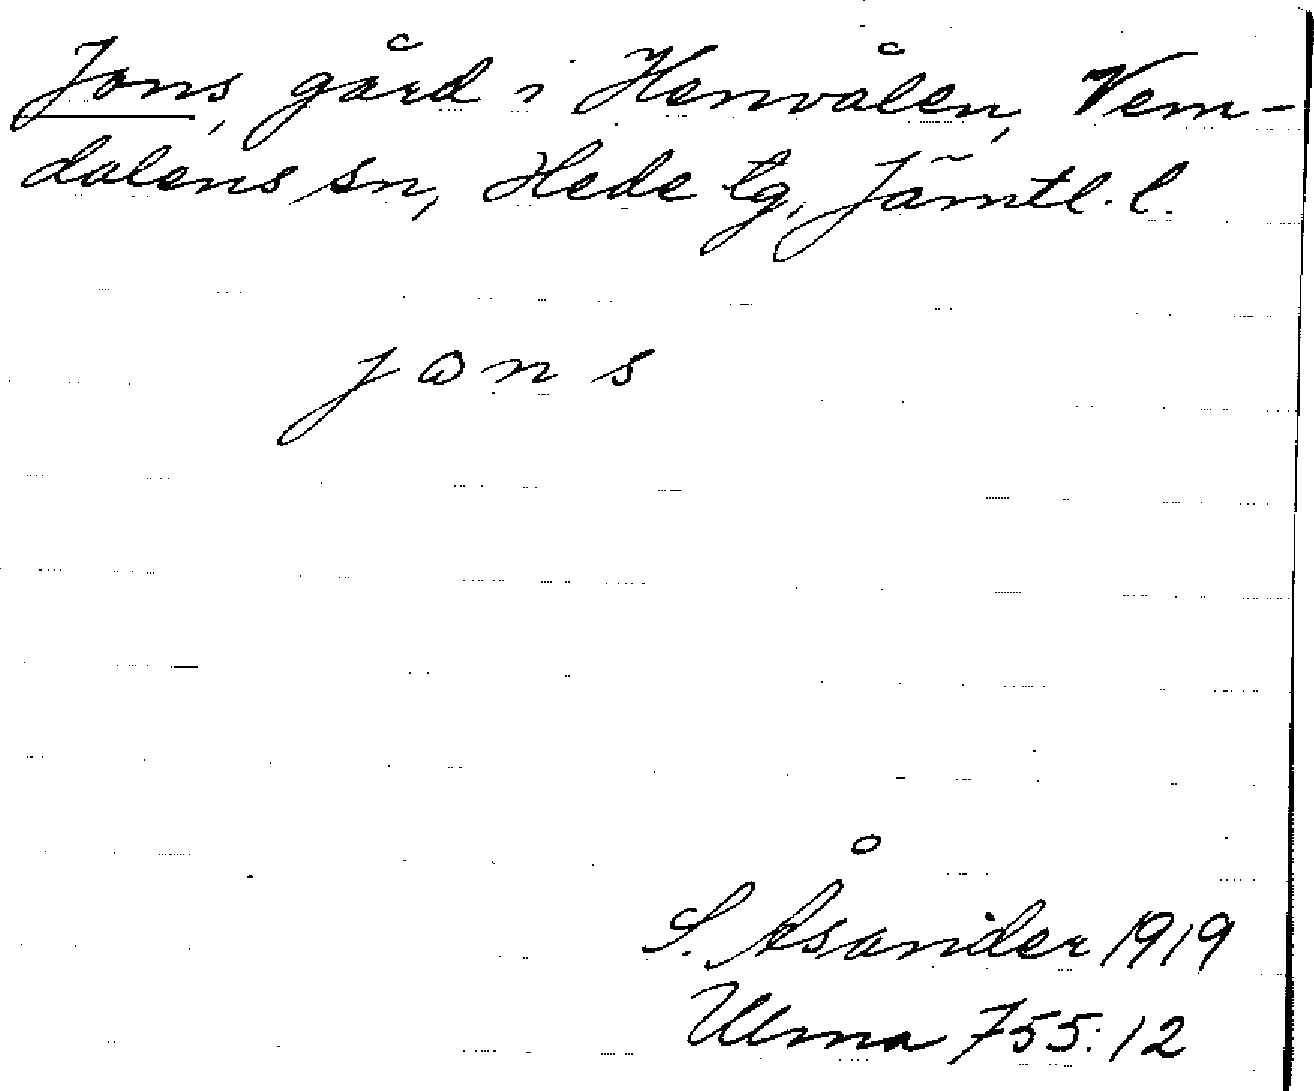 Jons, gård i Henvålen, Vem-
dalens sn, Hede tg, Jämtl. l.
jons
S. Åsander 1919
Ulma 755:12